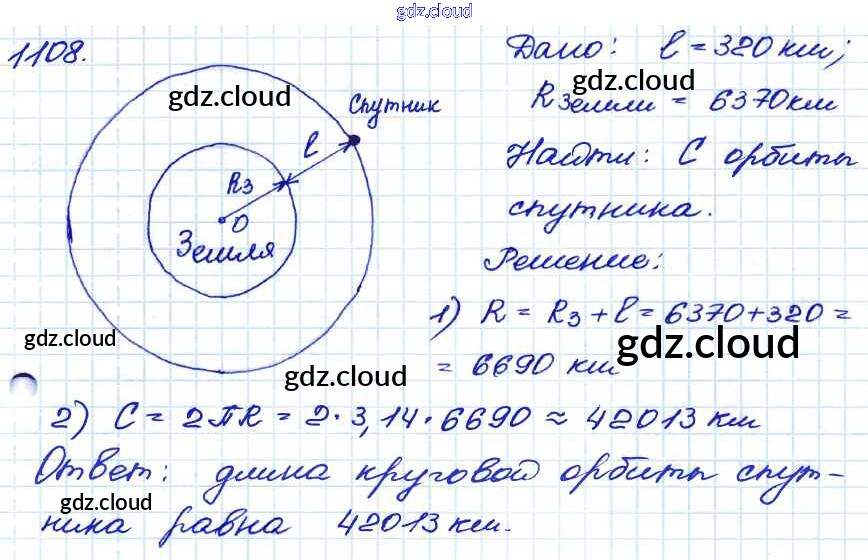 gdz.cloud
1108.
Дано: l = 320 км;
gdz.cloud
gdz.cloud
Спутник
l
Rземли = 6370 км
R₃
O
Земля
Найти: C орбиты
спутника.
Решение:
1) R = R₃ + l = 6370 + 320 =
= 6690 км
gdz.cloud
gdz.cloud
gdz.cloud
2) C = 2πR = 2 · 3,14 · 6690 ≈ 42013 км
Ответ: длина круговой орбиты спут-
gdz.cloud
ника равна 42013 км.